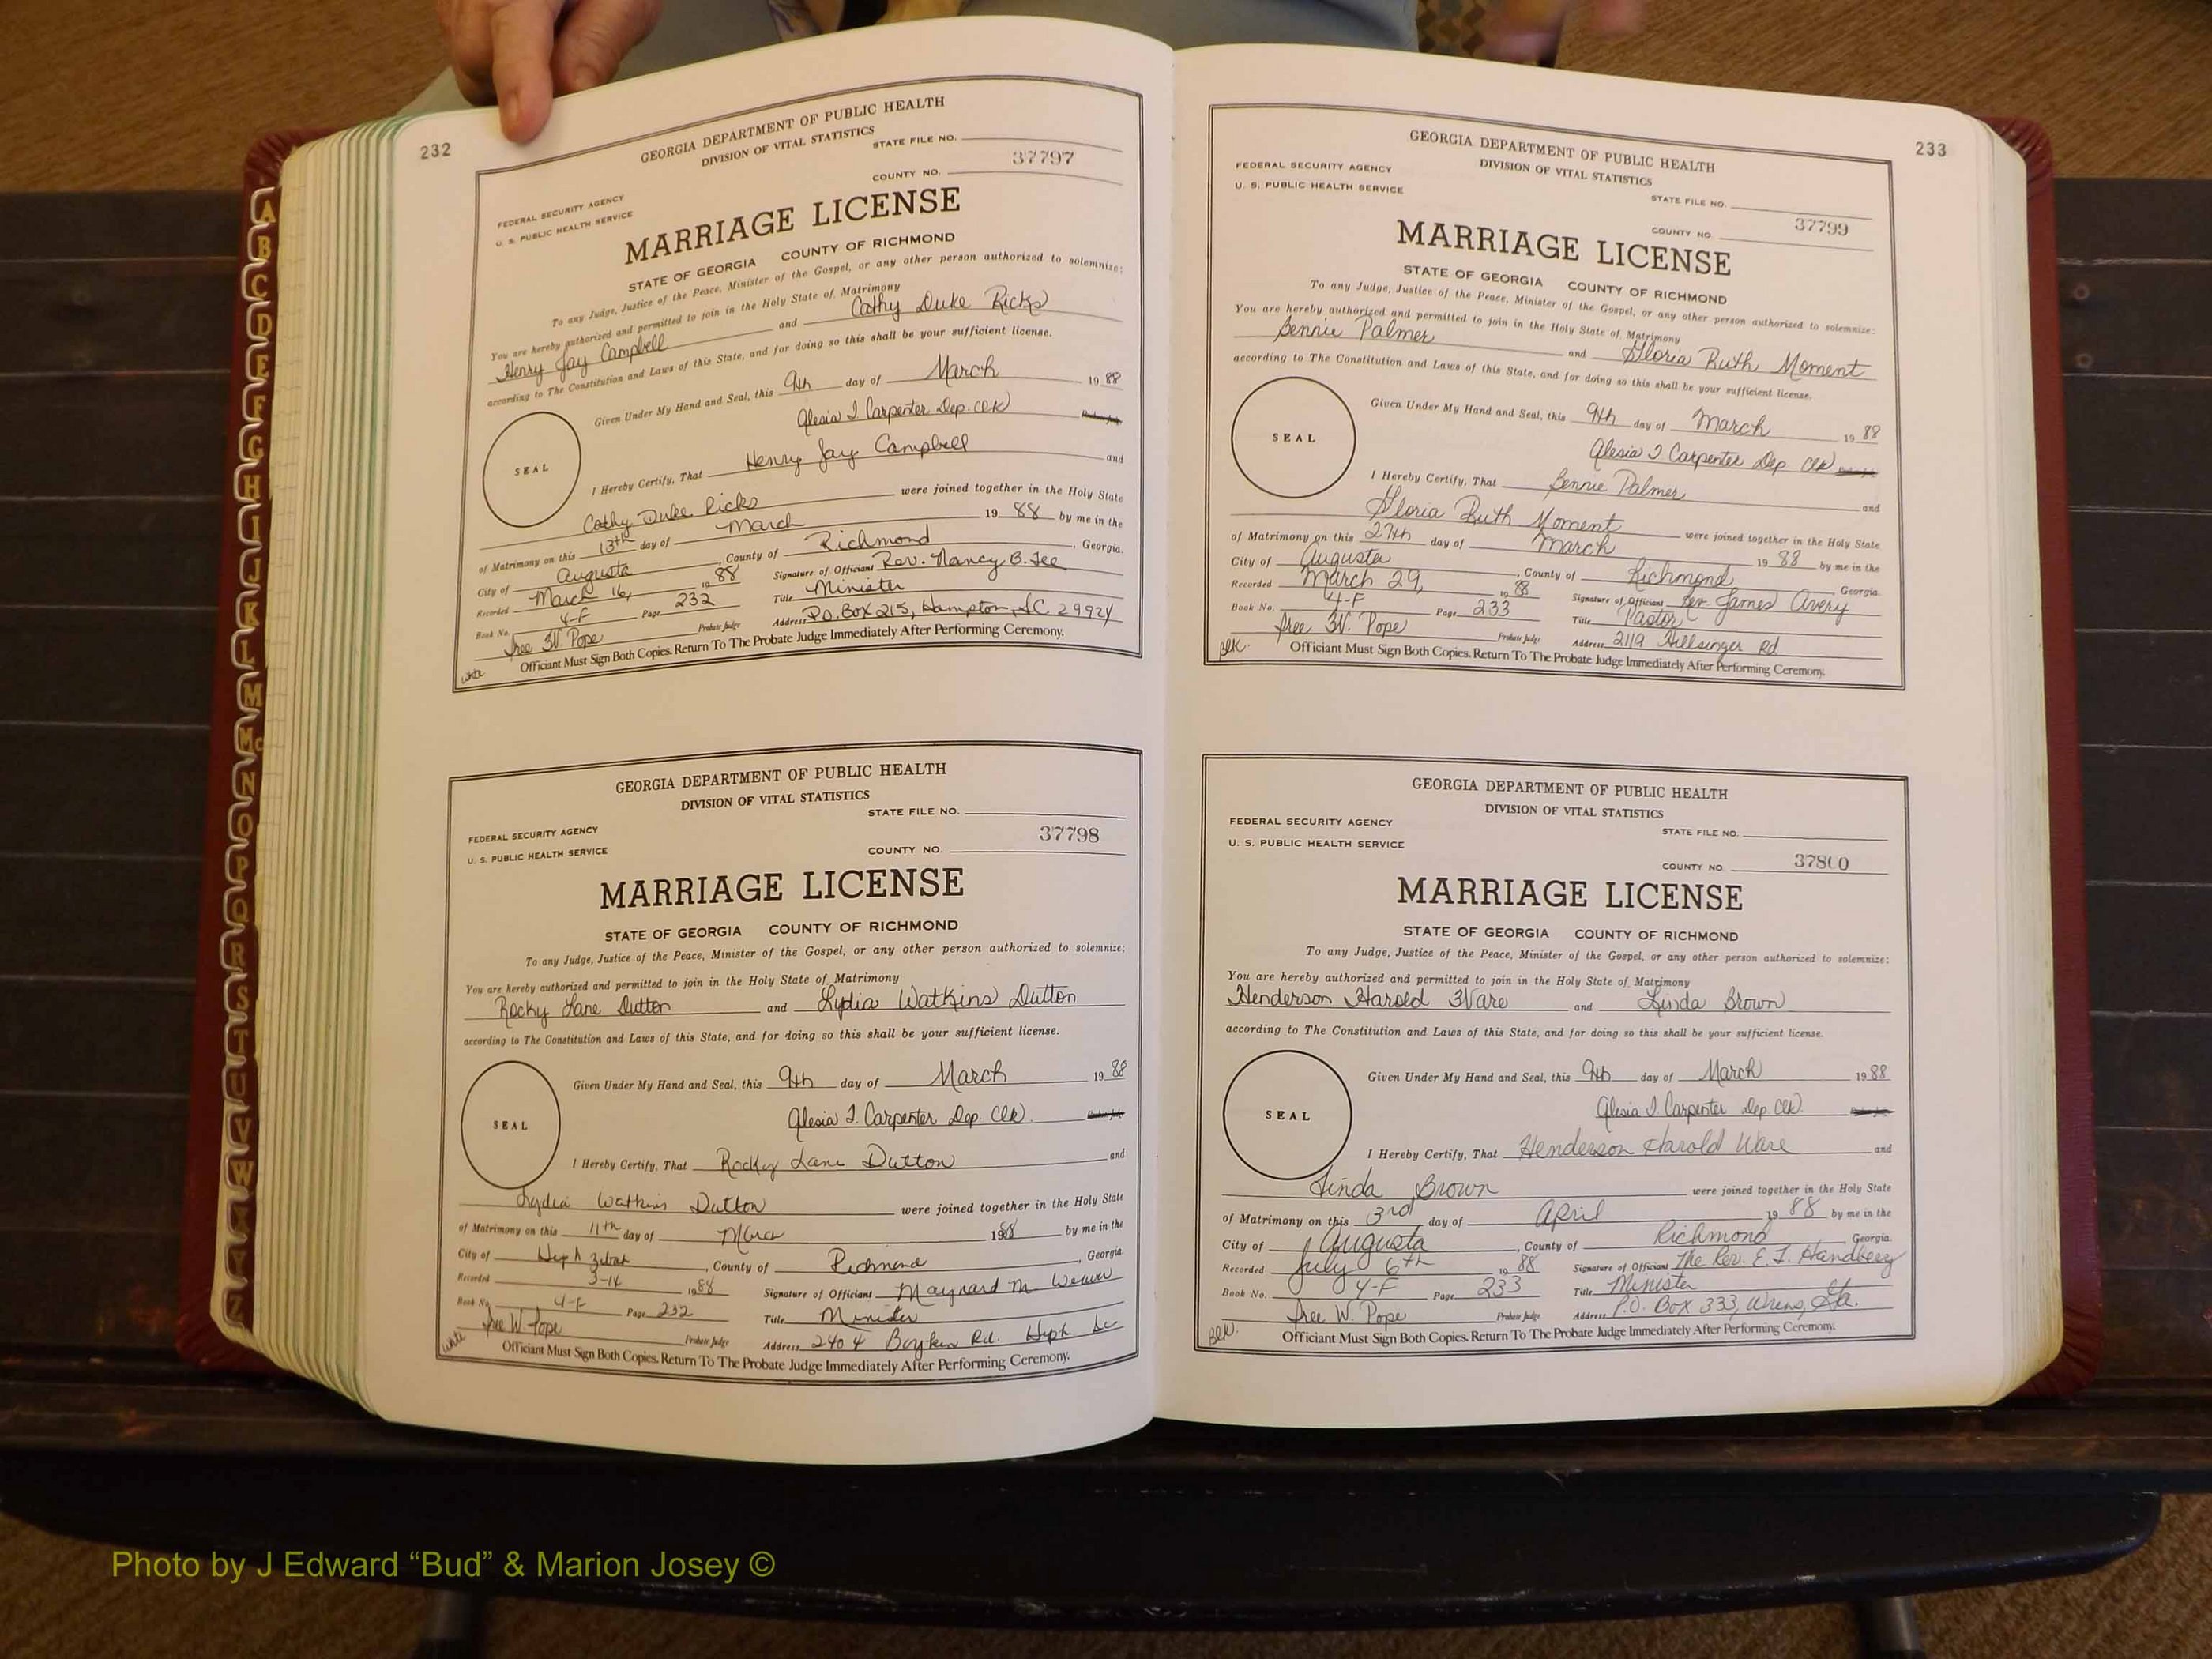 232
GEORGIA DEPARTMENT OF PUBLIC HEALTH
DIVISION OF VITAL STATISTICS
STATE FILE NO.
37797
COUNTY NO.
FEDERAL SECURITY AGENCY
U. S. PUBLIC HEALTH SERVICE
MARRIAGE LICENSE
STATE OF GEORGIA COUNTY OF RICHMOND
To any Judge, Justice of the Peace, Minister of the Gospel, or any other person authorized to solemnize:
You are hereby authorized and permitted to join in the Holy State of Matrimony
Henry Jay Campbell and Cathy Duke Ricks
according to The Constitution and Laws of this State, and for doing so this shall be your sufficient license.
Given Under My Hand and Seal, this 9th day of March 1988
Alesia J. Carpenter Dep. Clk
SEAL
I Hereby Certify, That Henry Jay Campbell and
Cathy Duke Ricks were joined together in the Holy State
of Matrimony on this 13th day of March 1988 by me in the
City of Augusta, County of Richmond, Georgia.
Recorded March 16, 1988 Signature of Officiant Rev. Nancy B. Fee
Book No. 4-F Page 232 Title Minister
Address P.O. Box 215, Hampton, SC 29924
Free W. Pope Probate Judge
Officiant Must Sign Both Copies. Return To The Probate Judge Immediately After Performing Ceremony.
White
GEORGIA DEPARTMENT OF PUBLIC HEALTH
DIVISION OF VITAL STATISTICS
STATE FILE NO.
FEDERAL SECURITY AGENCY
37798
U. S. PUBLIC HEALTH SERVICE
COUNTY NO.
MARRIAGE LICENSE
STATE OF GEORGIA COUNTY OF RICHMOND
To any Judge, Justice of the Peace, Minister of the Gospel, or any other person authorized to solemnize:
You are hereby authorized and permitted to join in the Holy State of Matrimony
Rocky Lane Dutton and Lydia Watkins Dutton
according to The Constitution and Laws of this State, and for doing so this shall be your sufficient license.
Given Under My Hand and Seal, this 9th day of March 1988
Alesia J. Carpenter Dep. Clk.
SEAL
I Hereby Certify, That Rocky Lane Dutton and
Lydia Watkins Dutton were joined together in the Holy State
of Matrimony on this 11th day of 1988 by me in the
City of , County of Richmond, Georgia.
Recorded 3-14 1988 Signature of Officiant Maynard M. Weaver
Book No. 4-F Page 232 Title Minister
Free W. Pope Probate Judge Address 2404 Boykin Rd. Heph
Officiant Must Sign Both Copies. Return To The Probate Judge Immediately After Performing Ceremony.
White
233
GEORGIA DEPARTMENT OF PUBLIC HEALTH
DIVISION OF VITAL STATISTICS
FEDERAL SECURITY AGENCY
U. S. PUBLIC HEALTH SERVICE
STATE FILE NO.
37799
COUNTY NO.
MARRIAGE LICENSE
STATE OF GEORGIA COUNTY OF RICHMOND
To any Judge, Justice of the Peace, Minister of the Gospel, or any other person authorized to solemnize:
You are hereby authorized and permitted to join in the Holy State of Matrimony
Bennie Palmer and Gloria Ruth Moment
according to The Constitution and Laws of this State, and for doing so this shall be your sufficient license.
Given Under My Hand and Seal, this 9th day of March 1988
Alesia J Carpenter Dep Clk
SEAL
I Hereby Certify, That Bennie Palmer and
Gloria Ruth Moment were joined together in the Holy State
of Matrimony on this 27th day of March 1988 by me in the
City of Augusta, County of Richmond, Georgia.
Recorded March 29, 1988 Signature of Officiant Rev. James Avery
Book No. 4-F Page 233 Title Pastor
Free W. Pope Probate Judge Address 2119 Hillsinger Rd
Blk. Officiant Must Sign Both Copies. Return To The Probate Judge Immediately After Performing Ceremony.
GEORGIA DEPARTMENT OF PUBLIC HEALTH
DIVISION OF VITAL STATISTICS
FEDERAL SECURITY AGENCY
STATE FILE NO.
U. S. PUBLIC HEALTH SERVICE
COUNTY NO. 37800
MARRIAGE LICENSE
STATE OF GEORGIA COUNTY OF RICHMOND
To any Judge, Justice of the Peace, Minister of the Gospel, or any other person authorized to solemnize:
You are hereby authorized and permitted to join in the Holy State of Matrimony
Henderson Harold Ware and Linda Brown
according to The Constitution and Laws of this State, and for doing so this shall be your sufficient license.
Given Under My Hand and Seal, this 9th day of March 1988
Alesia J. Carpenter Dep. Clk.
SEAL
I Hereby Certify, That Henderson Harold Ware and
Linda Brown were joined together in the Holy State
of Matrimony on this 3rd day of April 1988 by me in the
City of Augusta, County of Richmond Georgia.
Recorded July 6th 1988 Signature of Officiant The Rev. E. J. Handberg
Book No. 4-F Page 233 Title Minister
Free W. Pope Probate Judge Address P.O. Box 333, Wrens, Ga.
Blk. Officiant Must Sign Both Copies. Return To The Probate Judge Immediately After Performing Ceremony.
A
B
C
D
E
F
G
H
I
J
K
L
M
Mc
N
O
P
Q
R
S
T
U
V
W
X
Y
Z
Photo by J Edward “Bud” & Marion Josey ©